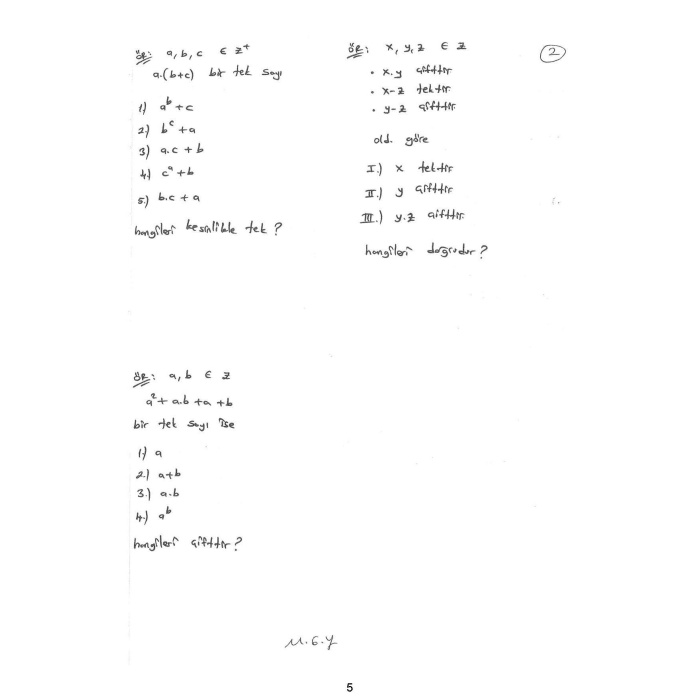 ÖR: a, b, c ∈ Z⁺
a.(b+c) bir tek sayı
1) aᵇ + c
2) bᶜ + a
3) a.c + b
4) cᵃ + b
5) b.c + a
hangileri kesinlikle tek ?
ÖR: x, y, z ∈ Z
• x.y çifttir
• x-z tektir
• y-z çifttir
old. göre
I.) x tektir
II.) y çifttir
III.) y.z çifttir
hangileri doğrudur ?
2
ÖR: a, b ∈ Z
a² + a.b + a + b
bir tek sayı ise
1) a
2.) a+b
3.) a.b
4.) aᵇ
hangileri çifttir ?
M.G.Y
5